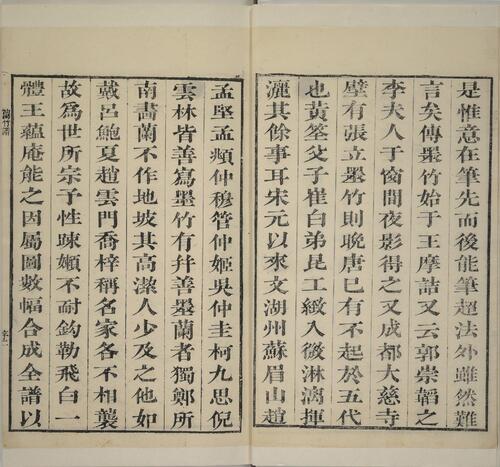 是惟意在筆先而後能筆超法外雖然難
言矣傳墨竹始于王摩詰又云郭崇韜之
李夫人于窗間夜影得之又成都大慈寺
壁有張立墨竹則晚唐巳有不起於五代
也黃筌父子崔白弟昆工緻入微淋漓揮
灑其餘事耳宋元以來文湖州蘇眉山趙
孟堅孟頫仲穆管仲姬吳仲圭柯九思倪
雲林皆善寫墨竹有幷善墨蘭者獨鄭所
南畵蘭不作地坡其高潔人少及之他如
戴呂鮑夏趙雲門喬梓稱名家各不相襲
故爲世所宗予性竦嬾不耐鈎勒飛白一
體王蘊庵能之因屬圖數幅合成全譜以
蘭竹譜